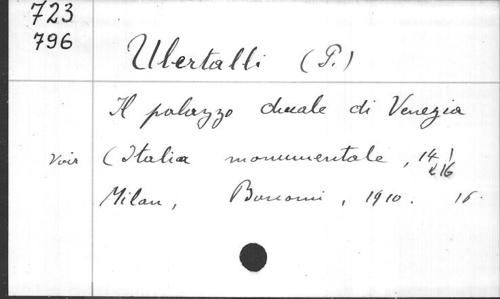 723
796
Ubertalli (P.)
Il palazzo ducale di Venezia
Voir (Italia monumentale, 14)
&16
Milan, Bonomi, 1910. 16.